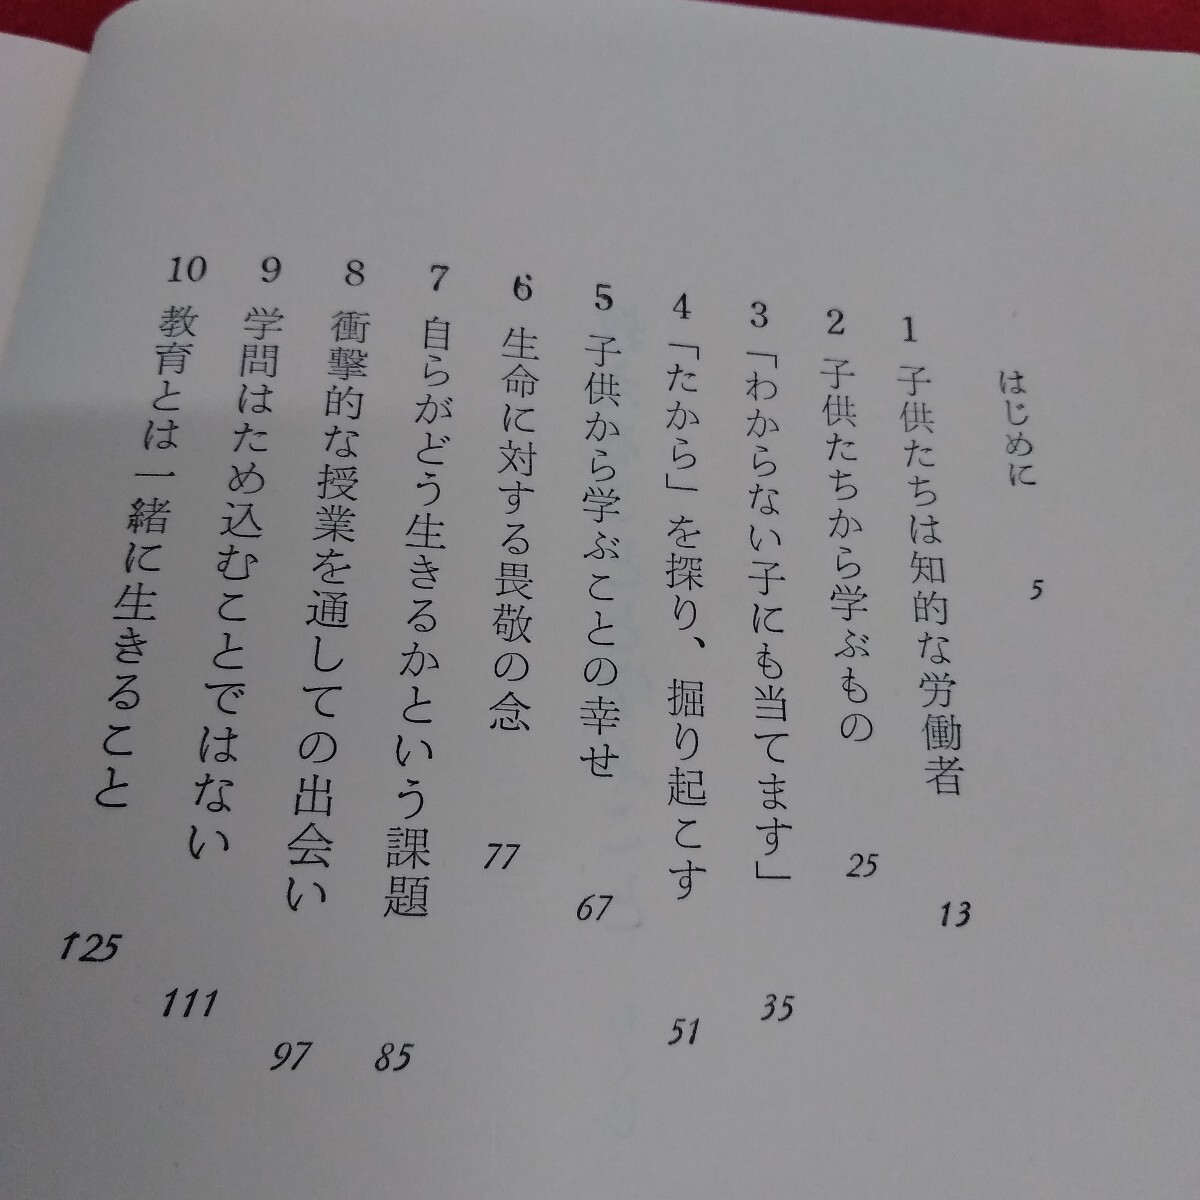 はじめに 5
1 子供たちは知的な労働者 13
2 子供たちから学ぶもの 25
3 「わからない子にも当てます」 35
4 「たから」を探り、掘り起こす 51
5 子供から学ぶことの幸せ 67
6 生命に対する畏敬の念 77
7 自らがどう生きるかという課題 85
8 衝撃的な授業を通しての出会い 97
9 学問はため込むことではない 111
10 教育とは一緒に生きること 125